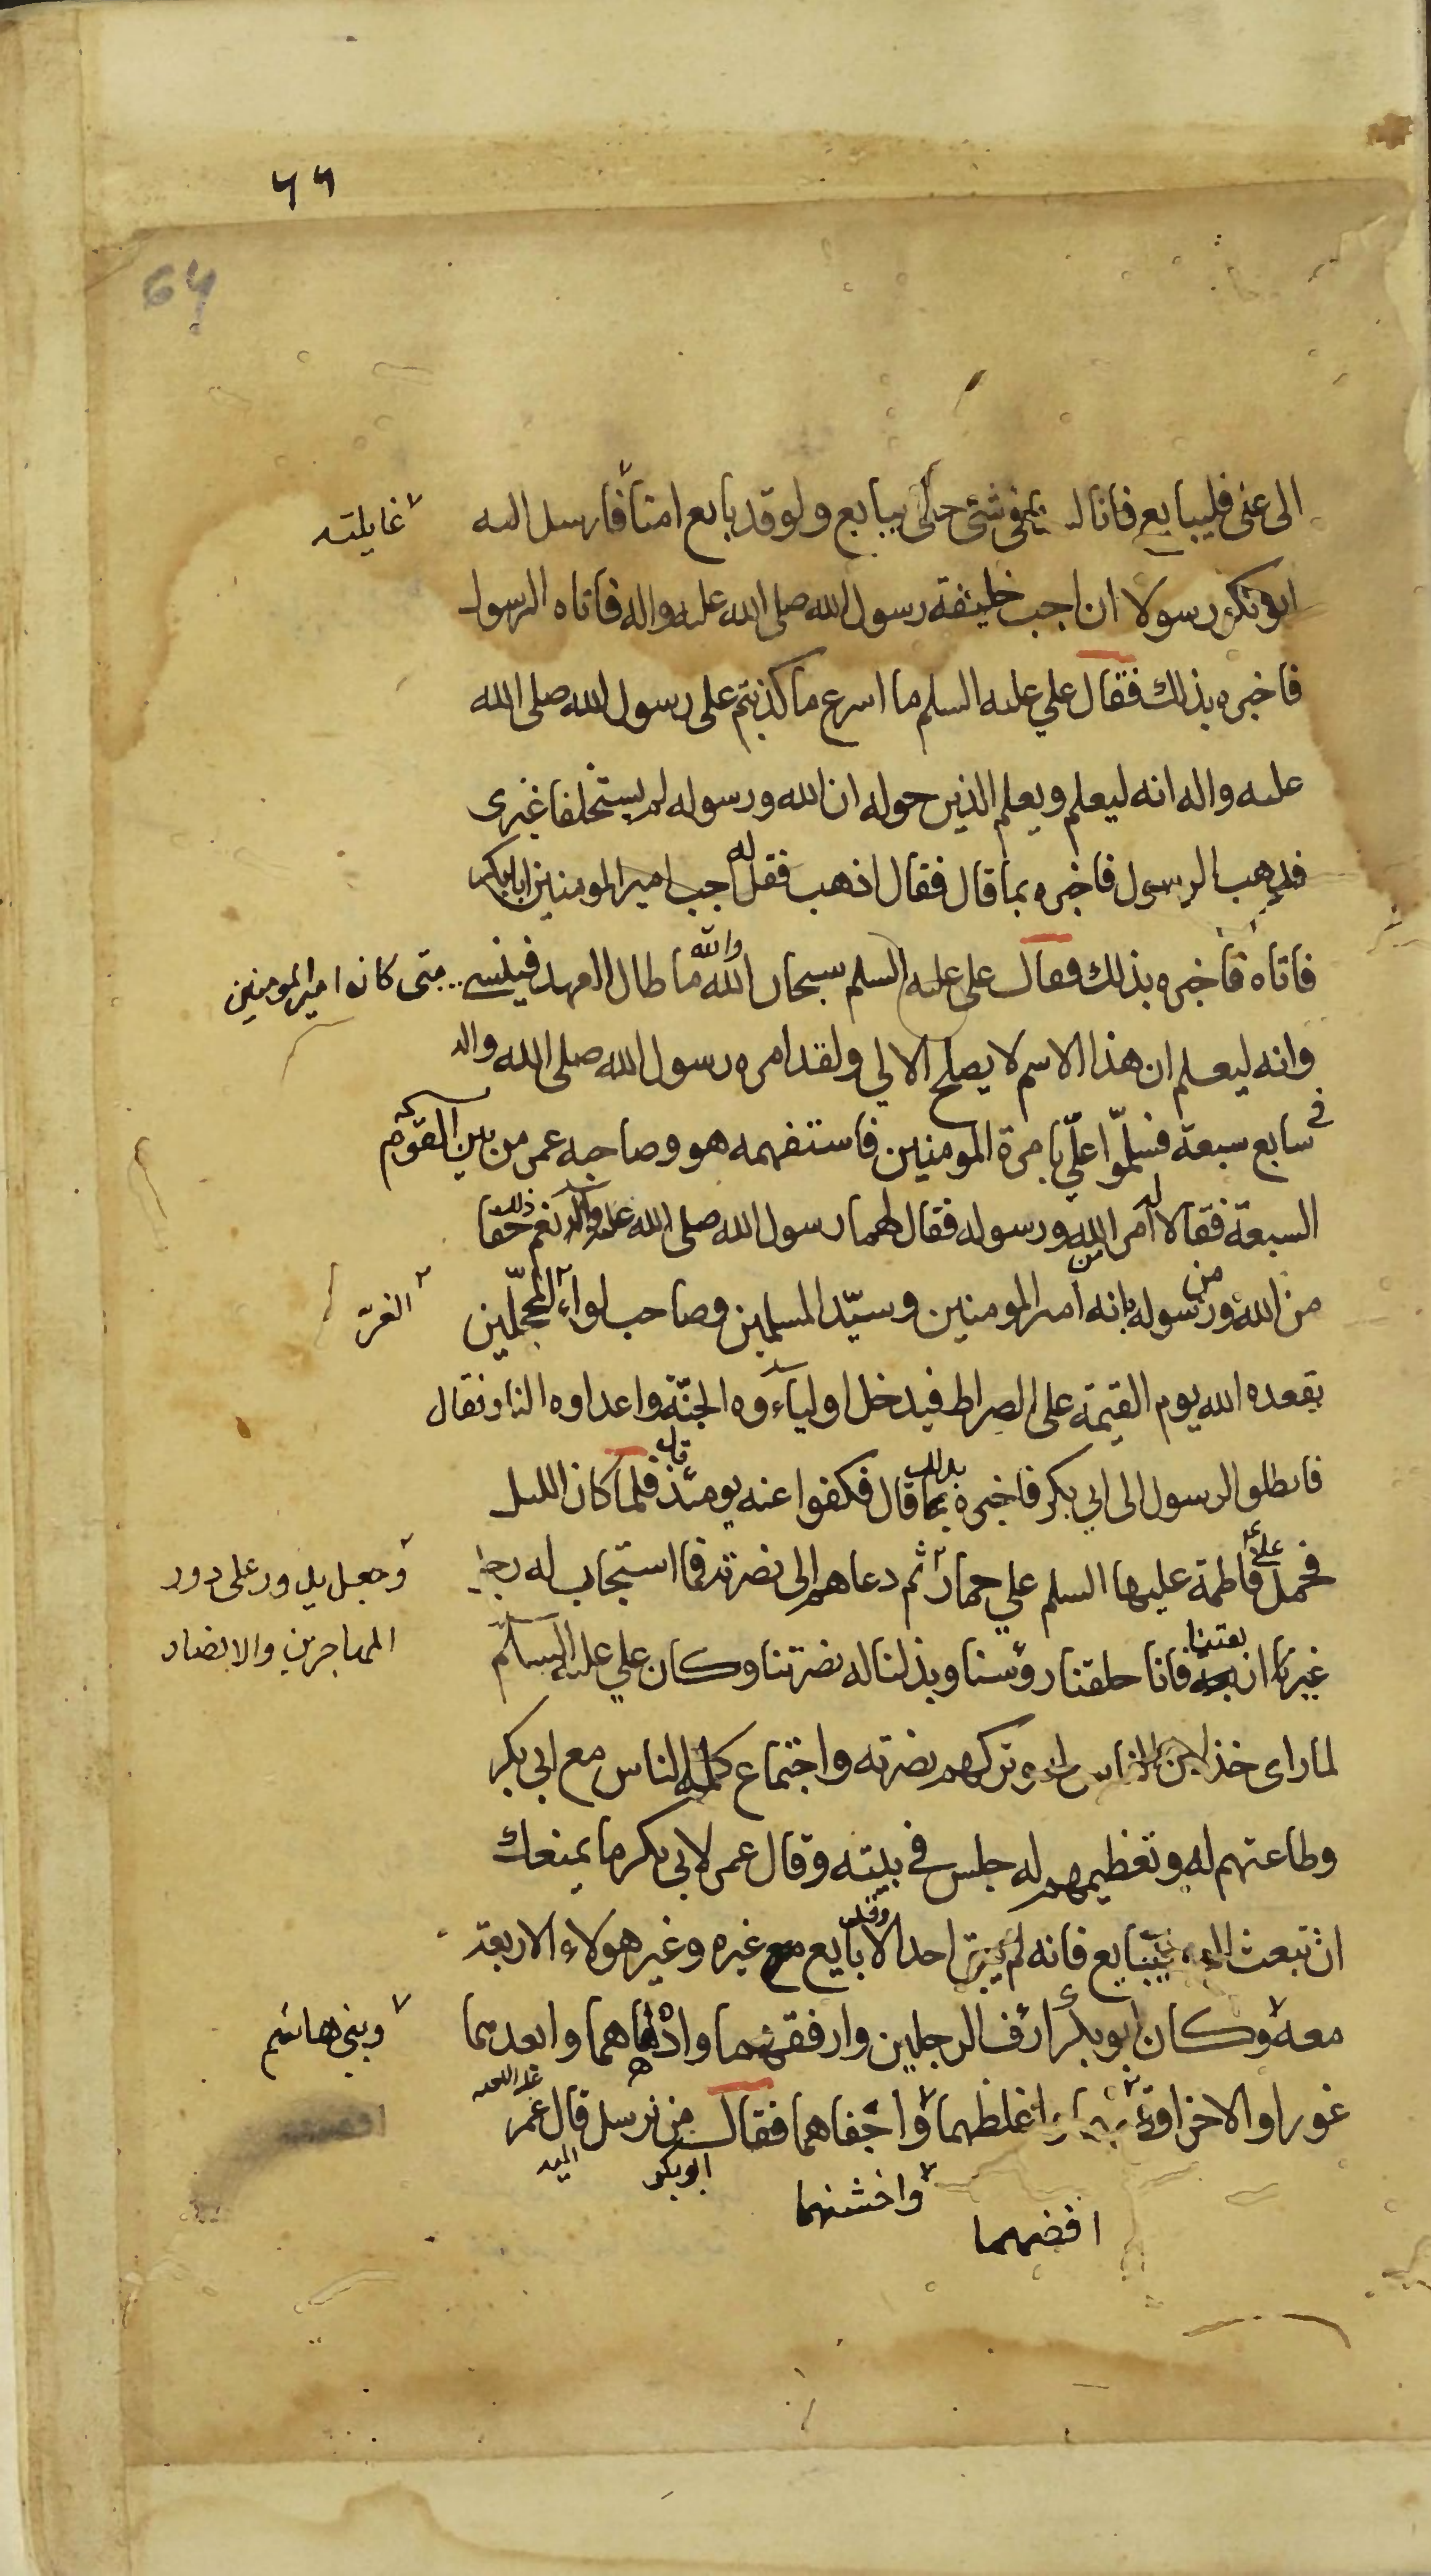 ٦٦
64
الى عنى فليبايع فانا لـ في شئ حتى يبايع ولو قد بايع امنا فارسل اليه
غايلته
ابو بكر رسولا ان اجب خليفة رسول الله صلى الله عليه واله فاتاه الرسول
فاخبره بذلك فقال علي عليه السلم ما اسرع ما كذبتم على رسول الله صلى الله
عليه واله انه ليعلم ويعلم الذين حوله ان الله ورسوله لم يستخلفا غيرى
فذهب الرسول فاخبره بما قال فقال اذهب فقل له اجب امير المومنين ابا بكر
فاتاه فاخبره بذلك فقال على عليه السلم سبحان الله والله ما طال العهد فينسى
متى كانوا امير المومنين
وانه ليعلم ان هذا الاسم لا يصلح الا لي ولقد امره رسول الله صلى الله واله
في سابع سبعة فسلموا علي بامرة المومنين فاستفهمه هو وصاحبه عمر من بين القوم
السبعة فقالا له امر الله ورسوله فقال لهما رسول الله صلى الله عليه واله نعم ذلك حقا
من الله ومن رسوله بانه امير المومنين وسيّد المسلمين وصاحب لواء المحجّلين
الغرّ
يقعده الله يوم القيمة على الصراط فيدخل اولياءوه الجنّة واعداوه النار فقال
فانطلق الرسول الى ابي بكر فاخبره بذلك بما قال فكفوا عنه يومئذ قال فلما كان الليل
فحمل علي ع فاطمة عليها السلم علي حمار ثم دعاهم الى نصرته فما استجاب له رجل
وجعل يدور على دور
المهاجرين والانصار
غيرنا ان بعتنا فانا حلقنا رؤسنا وبذلنا له نصرتنا وكان علي عليه السلم
لما راى خذلان الناس له وتركهم نصرته واجتماع كلمة الناس مع ابي بكر
وطاعتهم له وتعظيمهم له جلس في بيته وقال عمر لابي بكر ما يمنعك
ان تبعث اليه فيبايع فانه لم يبق احد الا وقد بايع مع غيره وغير هولاء الاربعة
معه وكان ابو بكر ارف الرجلين وارفقهما وادهاهما وابعدهما
وبنى هاشم
غورا والاخر واغلظهما واجفاهما فقال ابو بكر من نرسل اليه قال عمر
واخشنهما
افضهما